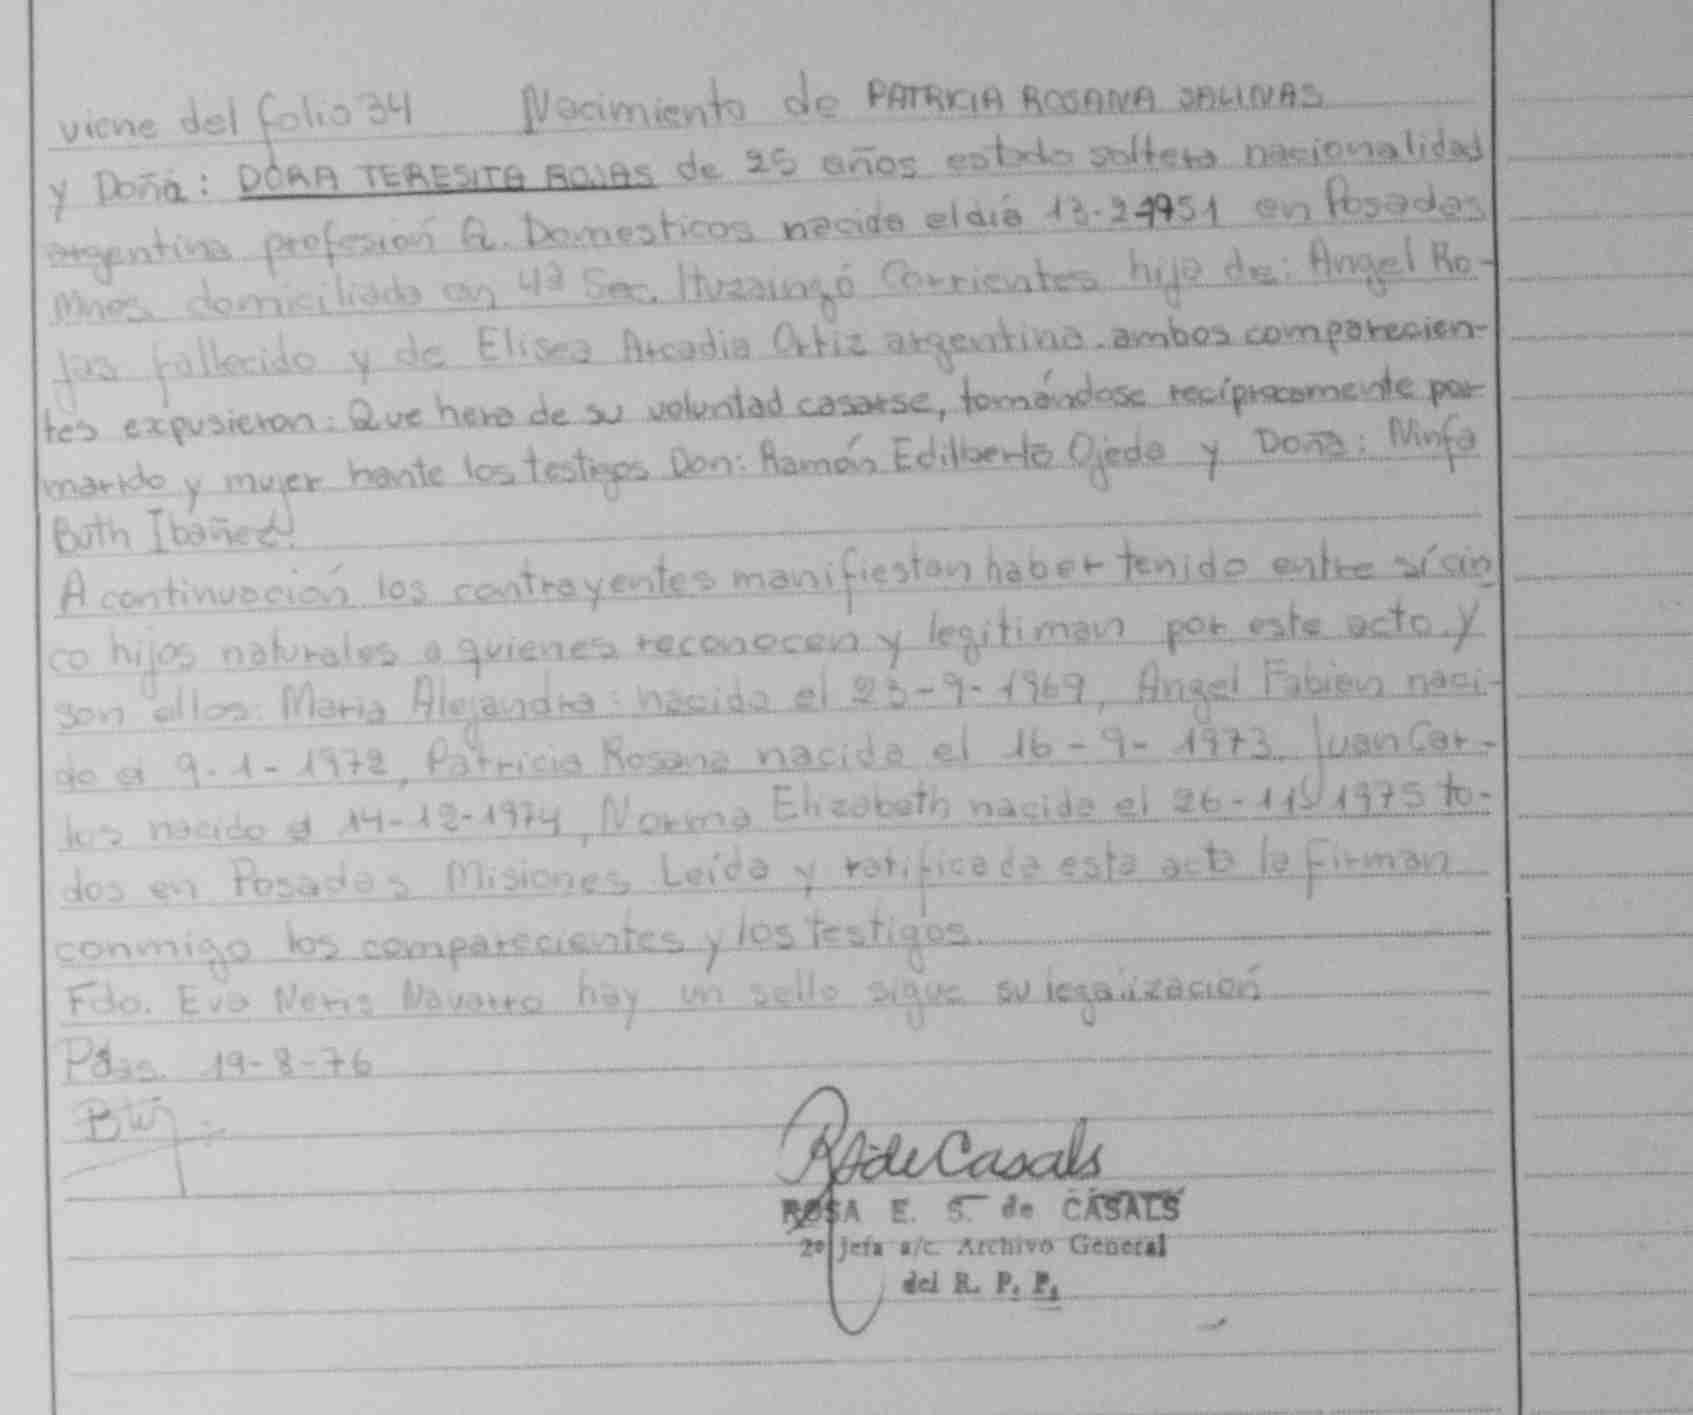 viene del folio 34 Nacimiento de PATRICIA ROSANA SALINAS
y Doña: DORA TERESITA ROJAS de 25 años estado soltera nacionalidad
argentina profesión Q. Domesticos nacida el día 13-2-1951 en Posadas
Mnes. domiciliada en 4ª Sec. Ituzaingó Corrientes hija de: Angel Ro-
jas fallecido y de Elisea Arcadia Ortiz argentina. ambos comparecien-
tes expusieron: Que hera de su voluntad casarse, tomándose recíprocamente por
marido y mujer hante los testigos Don: Ramón Edilberto Ojeda y Doña: Ninfa
Buth Ibañez.
A continuación los contrayentes manifiestan haber tenido entre sí cin
co hijos naturales a quienes reconocen y legitiman por este acto. y
son ellos: Maria Alejandra: nacida el 23-9-1969, Angel Fabián naci-
do el 9-1-1972, Patricia Rosana nacida el 16-9-1973. Juan Car-
los nacido el 14-12-1974, Norma Elizabeth nacida el 26-11-1975 to-
dos en Posadas Misiones Leída y ratificada esta acta la firman
conmigo los comparecientes y los testigos.
Fdo. Eva Neris Navarro hay un sello sigue su legalización
Pdas. 19-8-76
R de Casals
ROSA E. S. de CASALS
2º Jefa a/c. Archivo General
del R. P. P.